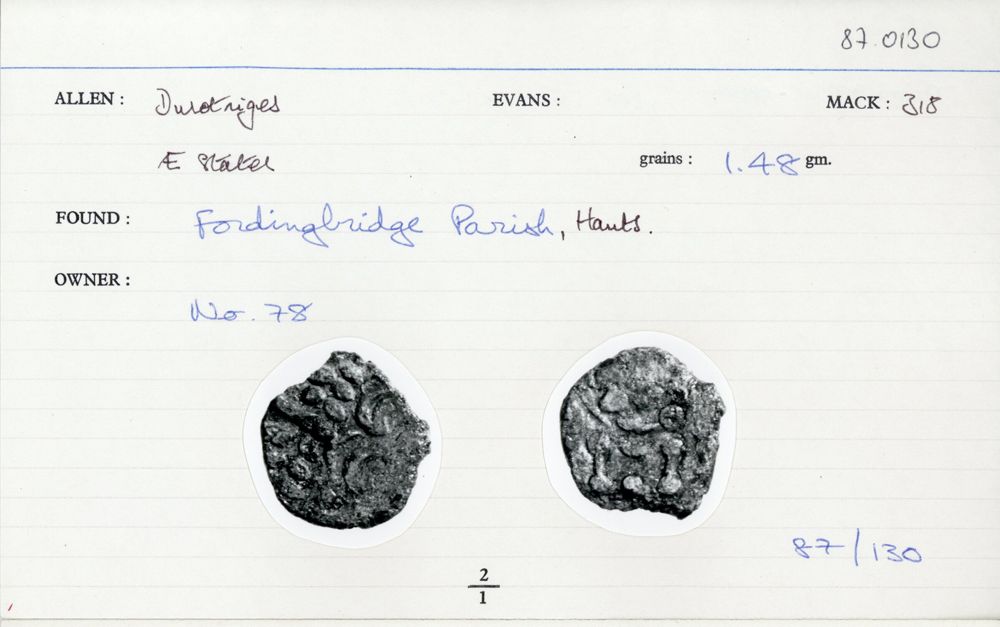 87.0130
ALLEN : Durotriges EVANS : MACK : 318
Æ Stater grains : 1.48 gm.
FOUND : Fordingbridge Parish, Hants.
OWNER :
No. 78
87/130
2
1